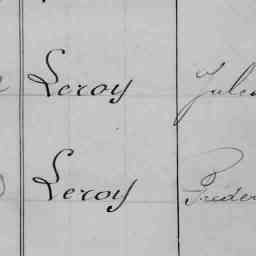 Leroy Jules
Leroy Freder